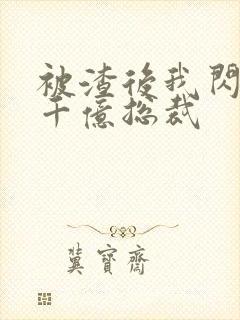 被渣後我閃
千億總裁
冀寶齋